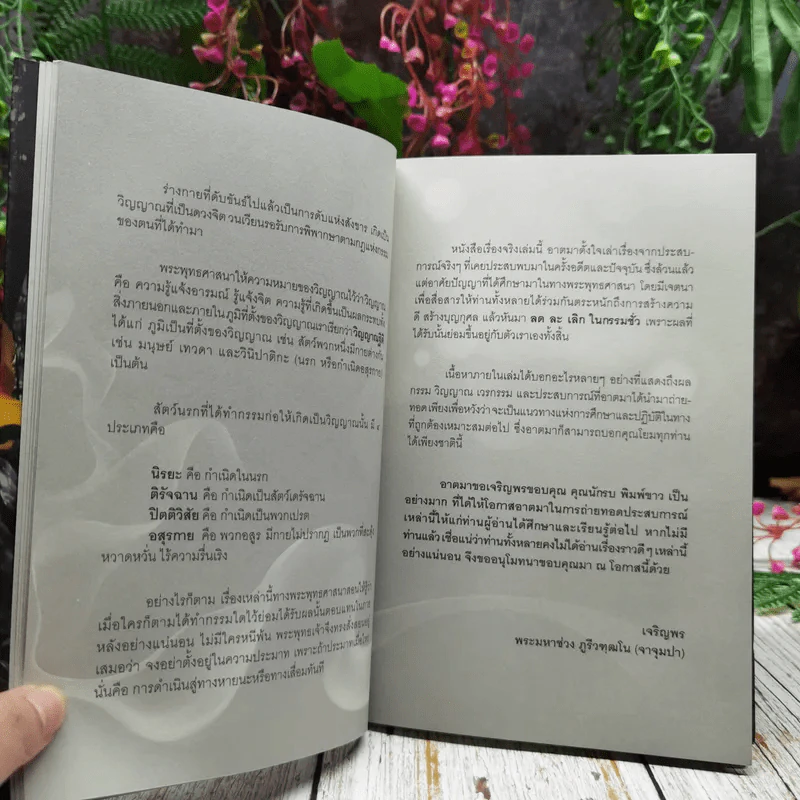 ร่างกายที่ดับขันธ์ไปแล้วเป็นการดับแห่งสังขาร เกิดเป็น
วิญญาณที่เป็นดวงจิต วนเวียนรอรับการพิพากษาตามกฎแห่งกรรม
ของตนที่ได้ทำมา
พระพุทธศาสนาให้ความหมายของวิญญาณไว้ว่าวิญญาณ
คือ ความรู้แจ้งอารมณ์ รู้แจ้งจิต ความรู้ที่เกิดขึ้นเป็นผลกระทบทั้ง
สิ่งภายนอกและภายในภูมิที่ตั้งของวิญญาณเราเรียกว่า
ได้แก่ ภูมิเป็นที่ตั้งของวิญญาณ เช่น สัตว์พวกหนึ่งมีกายต่างกัน
เช่น มนุษย์ เทวดา และวินิปาติกะ (นรก หรือกำเนิดอสุรกาย)
เป็นต้น
สัตว์นรกที่ได้ทำกรรมก่อให้เกิดเป็นวิญญาณนั้น มี ๔
ประเภทคือ
นิรยะ คือ กำเนิดในนรก
ติรัจฉาน คือ กำเนิดเป็นสัตว์เดรัจฉาน
ปิตติวิสัย คือ กำเนิดเป็นพวกเปรต
อสุรกาย คือ พวกอสูร มีกายไม่ปรากฏ เป็นพวกที่สะดุ้ง
หวาดหวั่น ไร้ความรื่นเริง
อย่างไรก็ตาม เรื่องเหล่านี้ทางพระพุทธศาสนาสอนให้รู้ว่า
เมื่อใครก็ตามได้ทำกรรมใดไว้ย่อมได้รับผลนั้นตอบแทนในภาย
หลังอย่างแน่นอน ไม่มีใครหนีพ้น พระพุทธเจ้าจึงทรงสั่งสอนอยู่
เสมอว่า จงอย่าตั้งอยู่ในความประมาท เพราะถ้าประมาทเมื่อไหร่
นั่นคือ การดำเนินสู่ทางหายนะหรือทางเสื่อมทันที
หนังสือเรื่องจริงเล่มนี้ อาตมาตั้งใจเล่าเรื่องจากประสบ-
การณ์จริงๆ ที่เคยประสบพบมาในครั้งอดีตและปัจจุบัน ซึ่งล้วนแล้ว
แต่อาศัยปัญญาที่ได้ศึกษามาในทางพระพุทธศาสนา โดยมีเจตนา
เพื่อสื่อสารให้ท่านทั้งหลายได้ร่วมกันตระหนักถึงการสร้างความ
ดี สร้างบุญกุศล แล้วหันมา ลด ละ เลิก ในกรรมชั่ว เพราะผลที่
ได้รับนั้นย่อมขึ้นอยู่กับตัวเราเองทั้งสิ้น
เนื้อหาภายในเล่มได้บอกอะไรหลายๆ อย่างที่แสดงถึงผล
กรรม วิญญาณ เวรกรรม และประสบการณ์ที่อาตมาได้นำมาถ่าย-
ทอดเพียงเพื่อหวังว่าจะเป็นแนวทางแห่งการศึกษาและปฏิบัติในทาง
ที่ถูกต้องเหมาะสมต่อไป ซึ่งอาตมาก็สามารถบอกคุณโยมทุกท่าน
ได้เพียงชาตินี้
อาตมาขอเจริญพรขอบคุณ คุณนักรบ พิมพ์ขาว เป็น
อย่างมาก ที่ได้ให้โอกาสอาตมาในการถ่ายทอดประสบการณ์
เหล่านี้ให้แก่ท่านผู้อ่านได้ศึกษาและเรียนรู้ต่อไป หากไม่มี
ท่านแล้วเชื่อแน่ว่าท่านทั้งหลายคงไม่ได้อ่านเรื่องราวดีๆ เหล่านี้
อย่างแน่นอน จึงขออนุโมทนาขอบคุณมา ณ โอกาสนี้ด้วย
เจริญพร
พระมหาช่วง ภูริวฑฺฒโน (จาจุมปา)